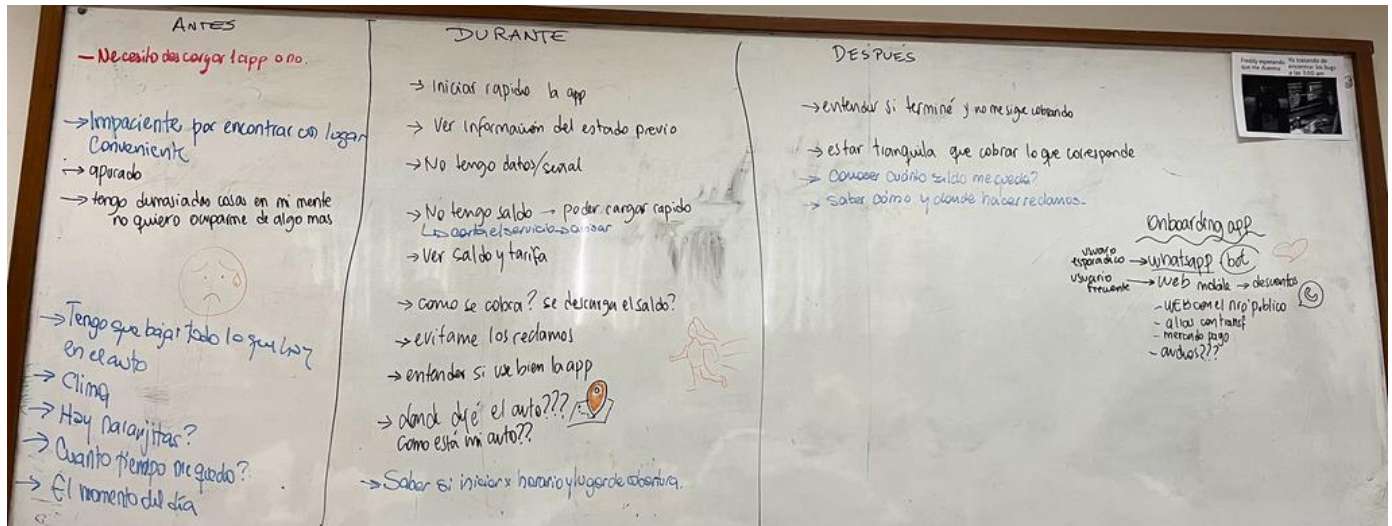 ANTES
- Necesito descargar 1 app o no.
→ Impaciente por encontrar un lugar
conveniente
→ apurado
→ tengo dumasiadas cosas en mi mente
no quiero ocuparme de algo mas
→ Tengo que bajar todo lo que hay
en el auto
→ Clima
→ Hay naranjitas?
→ Cuanto tiempo me quedo?
→ El momento del día
DURANTE
→ Iniciar rapido la app
→ Ver información del estado previo
→ No tengo datos/señal
→ No tengo saldo → poder cargar rapido
↳ corta el servicio → avisar
→ Ver saldo y tarifa
→ como se cobra? se descarga el saldo?
→ evitame los reclamos
→ entender si use bien la app
→ donde dejé el auto???
como está mi auto??
→ Saber si iniciar x horario y lugar de cobertura.
DESPUÉS
→ entender si terminé y no me sigue cobrando
→ estar tranquila que cobrar lo que corresponde
→ Conocer cuánto saldo me queda?
→ Saber cómo y donde hacer reclamos.
Onboarding app
usuario esporadico → whatsapp bot
usuario frecuente → web mobile → descuentos
- WEB con el nro publico
- alias con transf
- mercado pago
- audios???
Freddy esperando que me duerma
Yo tratando de encontrar los bugs a las 3:00 am